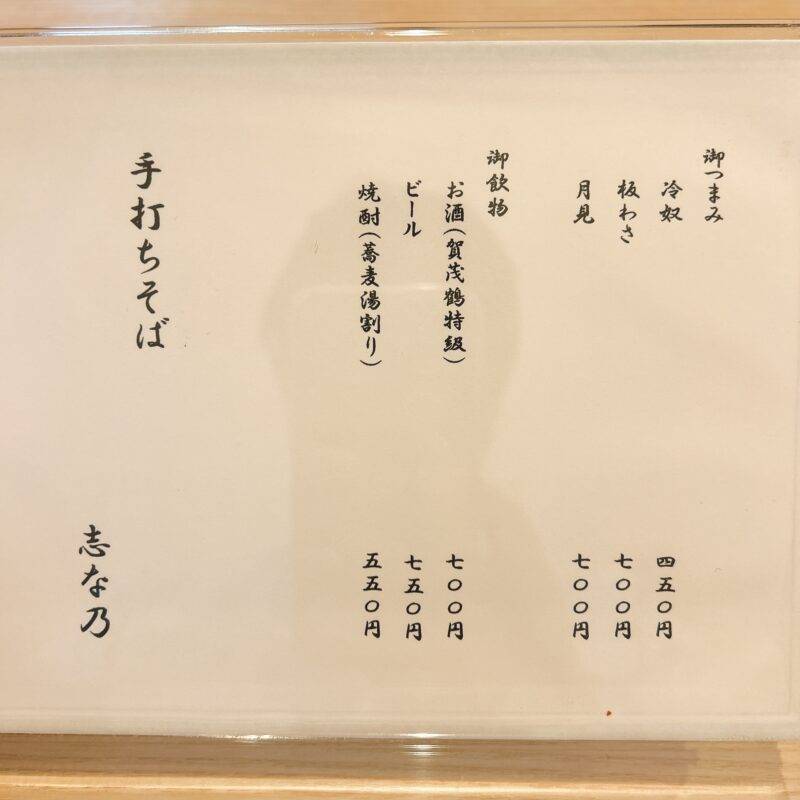 御つまみ
冷奴 四五〇円
板わさ 七〇〇円
月見 七〇〇円
御飲物
お酒(賀茂鶴特級) 七〇〇円
ビール 七五〇円
焼酎(蕎麦湯割り) 五五〇円
手打ちそば
志な乃